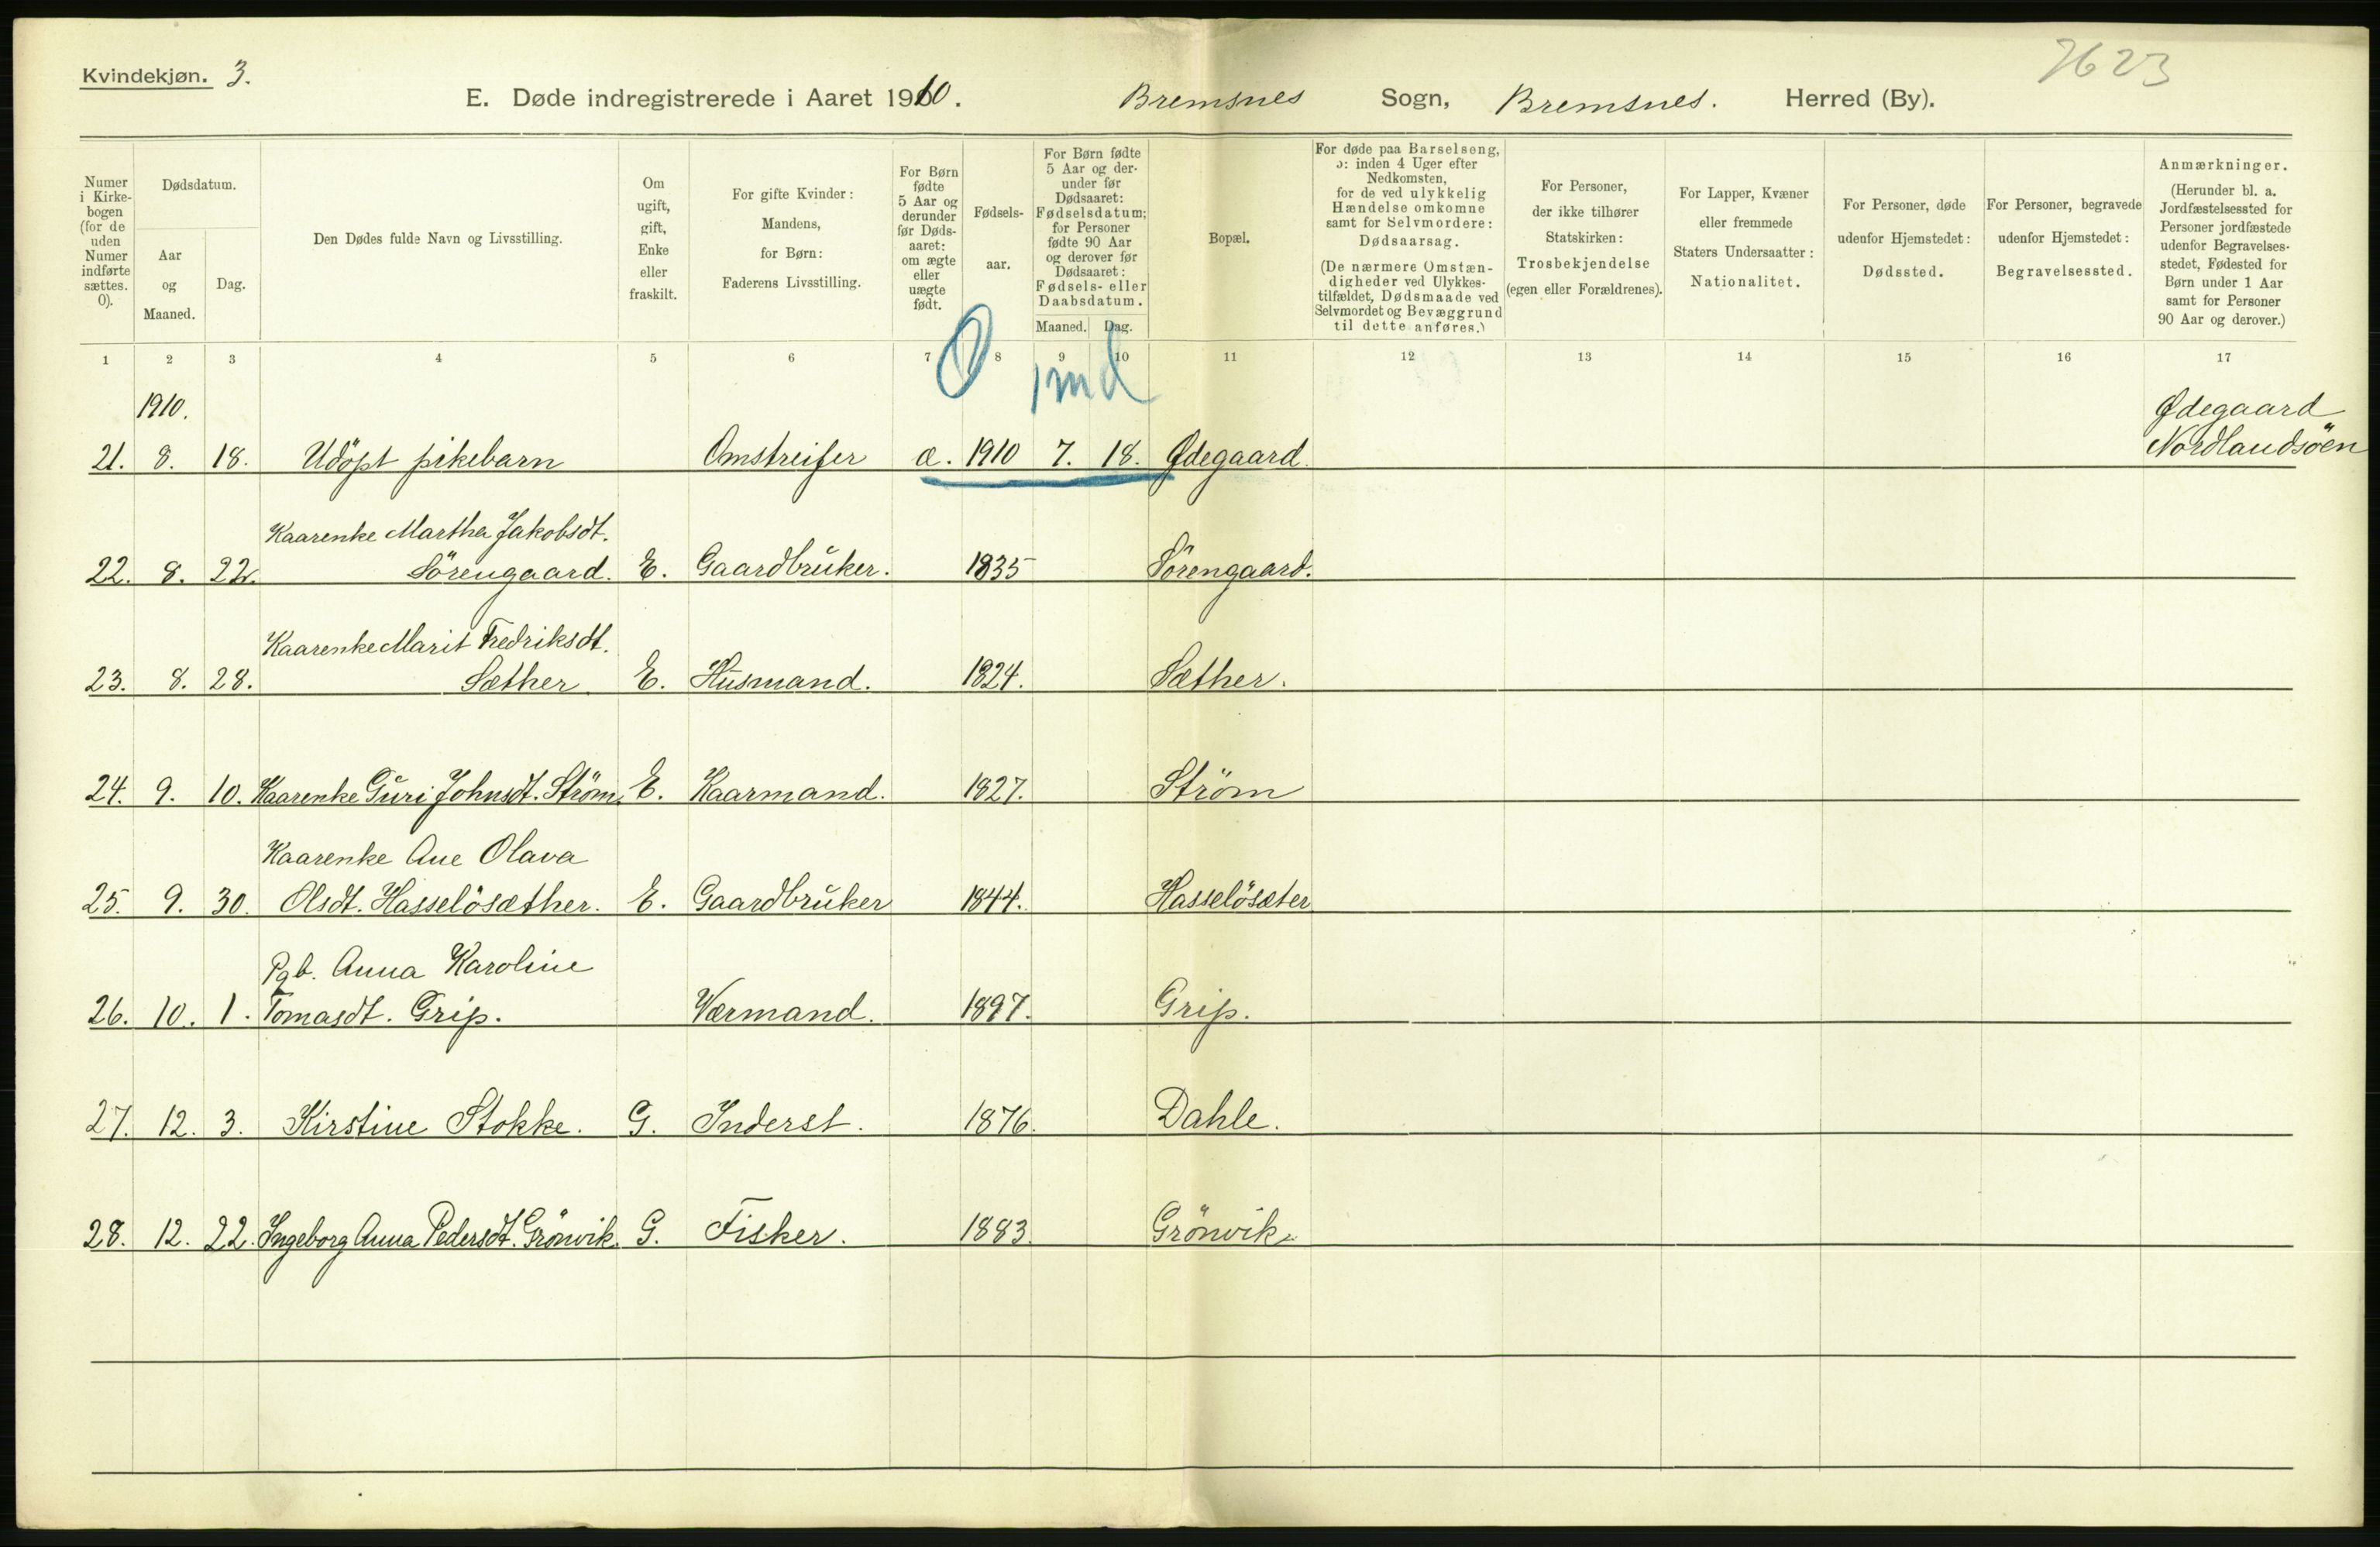 Kvindekjøn. 3.
7623
E. Døde indregistrerede i Aaret 1910. Bremsnes Sogn, Bremsnes. Herred (By).
Numer i Kirke-bogen (for de uden Numer indførte sættes. 0).
Dødsdatum.
Aar og Maaned.
Dag.
Den Dødes fulde Navn og Livsstilling.
Om ugift, gift, Enke eller fraskilt.
For gifte Kvinder: Mandens, for Børn: Faderens Livsstilling.
For Børn fødte 5 Aar og derunder før Døds-aaret: om ægte eller uægte født.
Fødsels-aar.
For Børn fødte 5 Aar og der-under før Dødsaaret: Fødselsdatum; for Personer fødte 90 Aar og derover før Dødsaaret: Fødsels- eller Daabsdatum.
Maaned. Dag.
Bopæl.
For døde paa Barselseng, ɔ: inden 4 Uger efter Nedkomsten, for de ved ulykkelig Hændelse omkomne samt for Selvmordere: Dødsaarsag.
(De nærmere Omstæn-digheder ved Ulykkes-tilfældet, Dødsmaade ved Selvmordet og Bevæggrund til dette anføres.)
For Personer, der ikke tilhører Statskirken: Trosbekjendelse (egen eller Forældrenes).
For Lapper, Kvæner eller fremmede Staters Undersaatter: Nationalitet.
For Personer, døde udenfor Hjemstedet: Dødssted.
For Personer, begravede udenfor Hjemstedet: Begravelsessted.
Anmærkninger.
(Herunder bl. a. Jordfæstelsessted for Personer jordfæstede udenfor Begravelses-stedet, Fødested for Børn under 1 Aar samt for Personer 90 Aar og derover.)
1 2 3 4 5 6 7 8 9 10 11 12 13 14 15 16 17
0 1 md
1910.
Ødegaard
21. 8. 18. Udöpt pikebarn Omstreifer æ. 1910 7. 18. Ødegaard. Nordlandsöen
Kaarenke Martha Jakobsdt.
22. 8. 22. Sörengaard. E. Gaardbruker. 1835 Sörengaard.
Kaarenke Marit Fredriksdt.
23. 8. 28. Sæther. E. Husmand. 1824. Sæther.
24. 9. 10. Kaarenke Guri Johnsdt. Ström. E. Kaarmand. 1827. Ström
Kaarenke Ane Olava
25. 9. 30. Olsdt. Hasselösæther. E. Gaardbruker 1844. Hasselösæter
Pgb. Anna Karoline
26. 10. 1. Tomasdt. Grip. Værmand. 1897. Grip.
27. 12. 3. Kirstine Stokke. G. Inderst. 1876. Dahle.
28. 12. 22. Ingeborg Anna Pedersdt. Grönvik. G. Fisker. 1883. Grönvik.